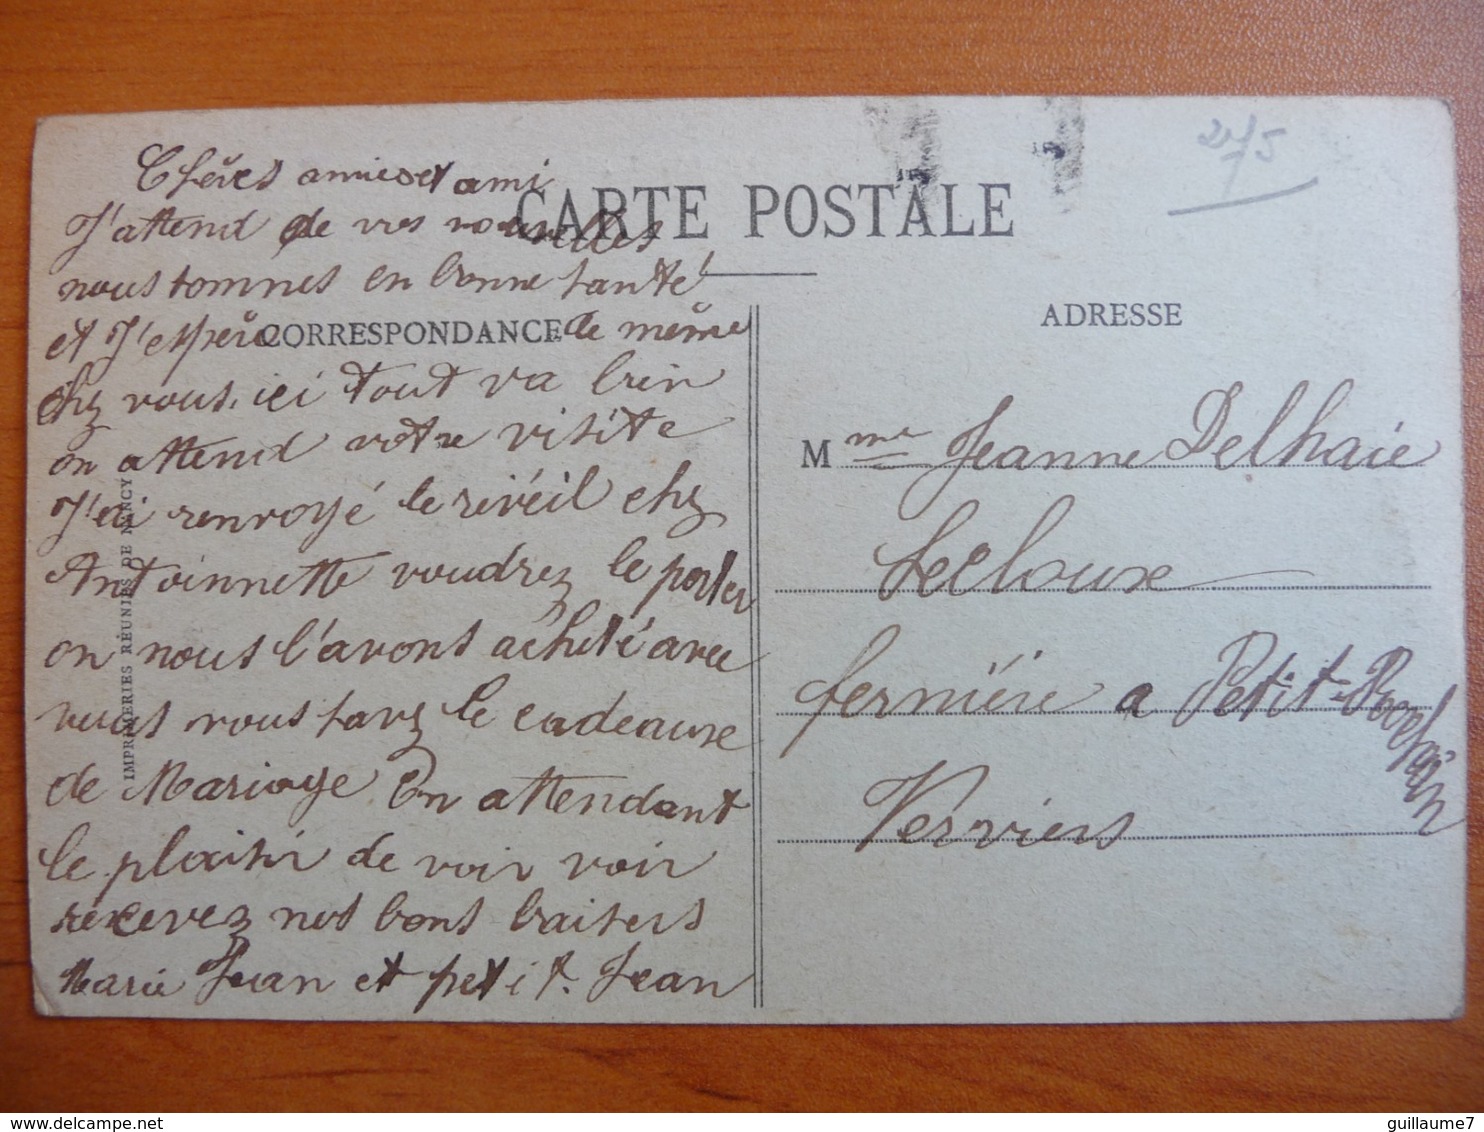 Chéres amies et ami
CARTE POSTALE
J'attend de vos nouvelles
nous sommes en bonne santé
et J'espère de même
CORRESPONDANCE
chez vous. ici tout va bien
on attend votre visite
J'ai renvoyé le réveil chez
Antoinnette voudrez le porter
on nous l'avons achété avec
vous savez le cadeaux
de Mariage En attendant
le plaisir de voir voir
recevez nos bons baisers
Marie Jean et petit. Jean
IMPRIMERIES RÉUNIES DE NANCY
ADRESSE
Mme Jeanne Delhaie
Leclouse
fermiére a Petit-Rechain
Verviers
delcampe.net
guillaume7